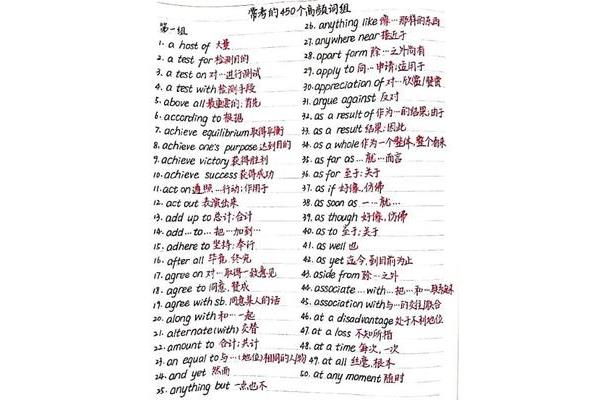 常考的450个高频词组
第一组
1. a host of 大量
2. a test for 检测目的
3. a test on 对…进行测试
4. a test with 检测手段
5. above all 最重要的;首先
6. according to 根据
7. achieve equilibrium 取得平衡
8. achieve one's purpose 达到目的
9. achieve victory 获得胜利
10. achieve success 获得成功
11. act on 遵照…行动;作用于
12. act out 表演出来
13. add up to 总计;合计
14. add…to… 把…加到…
15. adhere to 坚持;奉行
16. after all 毕竟,终究
17. agree on 对…取得一致意见
18. agree to 同意,赞成
19. agree with sb. 同意某人的话
20. along with 和…一起
21. alternate (with) 交替
22. amount to 合计;共计
23. an equal to 与…(地位)相同的人(物)
24. and yet 然而
25. anything but 一点也不
26. anything like 像…那样的东西
27. anywhere near 接近于
28. apart form 除…之外尚有
29. apply to 向…申请;适用于
30. appreciation of 对…欣赏/赞赏
31. argue against 反对
32. as a result of 作为…的结果;由于
33. as a result 结果;因此
34. as a whole 作为一个整体,整个看来
35. as far as …就…而言
36. as for 至于;关于
37. as if 好像,仿佛
38. as soon as 一…就…
39. as though 好像,仿佛
40. as to 至于;关于
41. as well 也
42. as yet 迄今,到目前为止
43. aside from 除…之外
44. associate…with… 把…和…联系起来
45. association with 与…的交往,联合
46. at a disadvantage 处于不利地位
47. at a loss 不知所措
48. at a time 每次,一次
49. at all 丝毫,根本
50. at any moment 随时